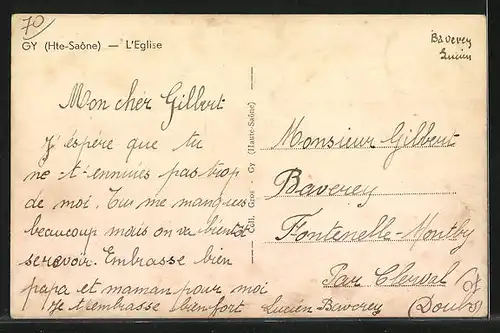 70
GY (Hte-Saône) — L'Eglise
Baverey
Lucien
Mon chér Gilbert
J'éspére que tu
ne t'ennuies pas trop
de moi. Tus me manques
beaucoup mais on va bientot
se revoir. Embrasse bien
papa et maman pour moi
Je t'embrasse bien fort Lucien Baverey
Coll. Gros - Gy (Haute-Saône)
Monsieur Gilbert
Baverey
Fontenelle-Montby
Par Clerval
(Doubs)